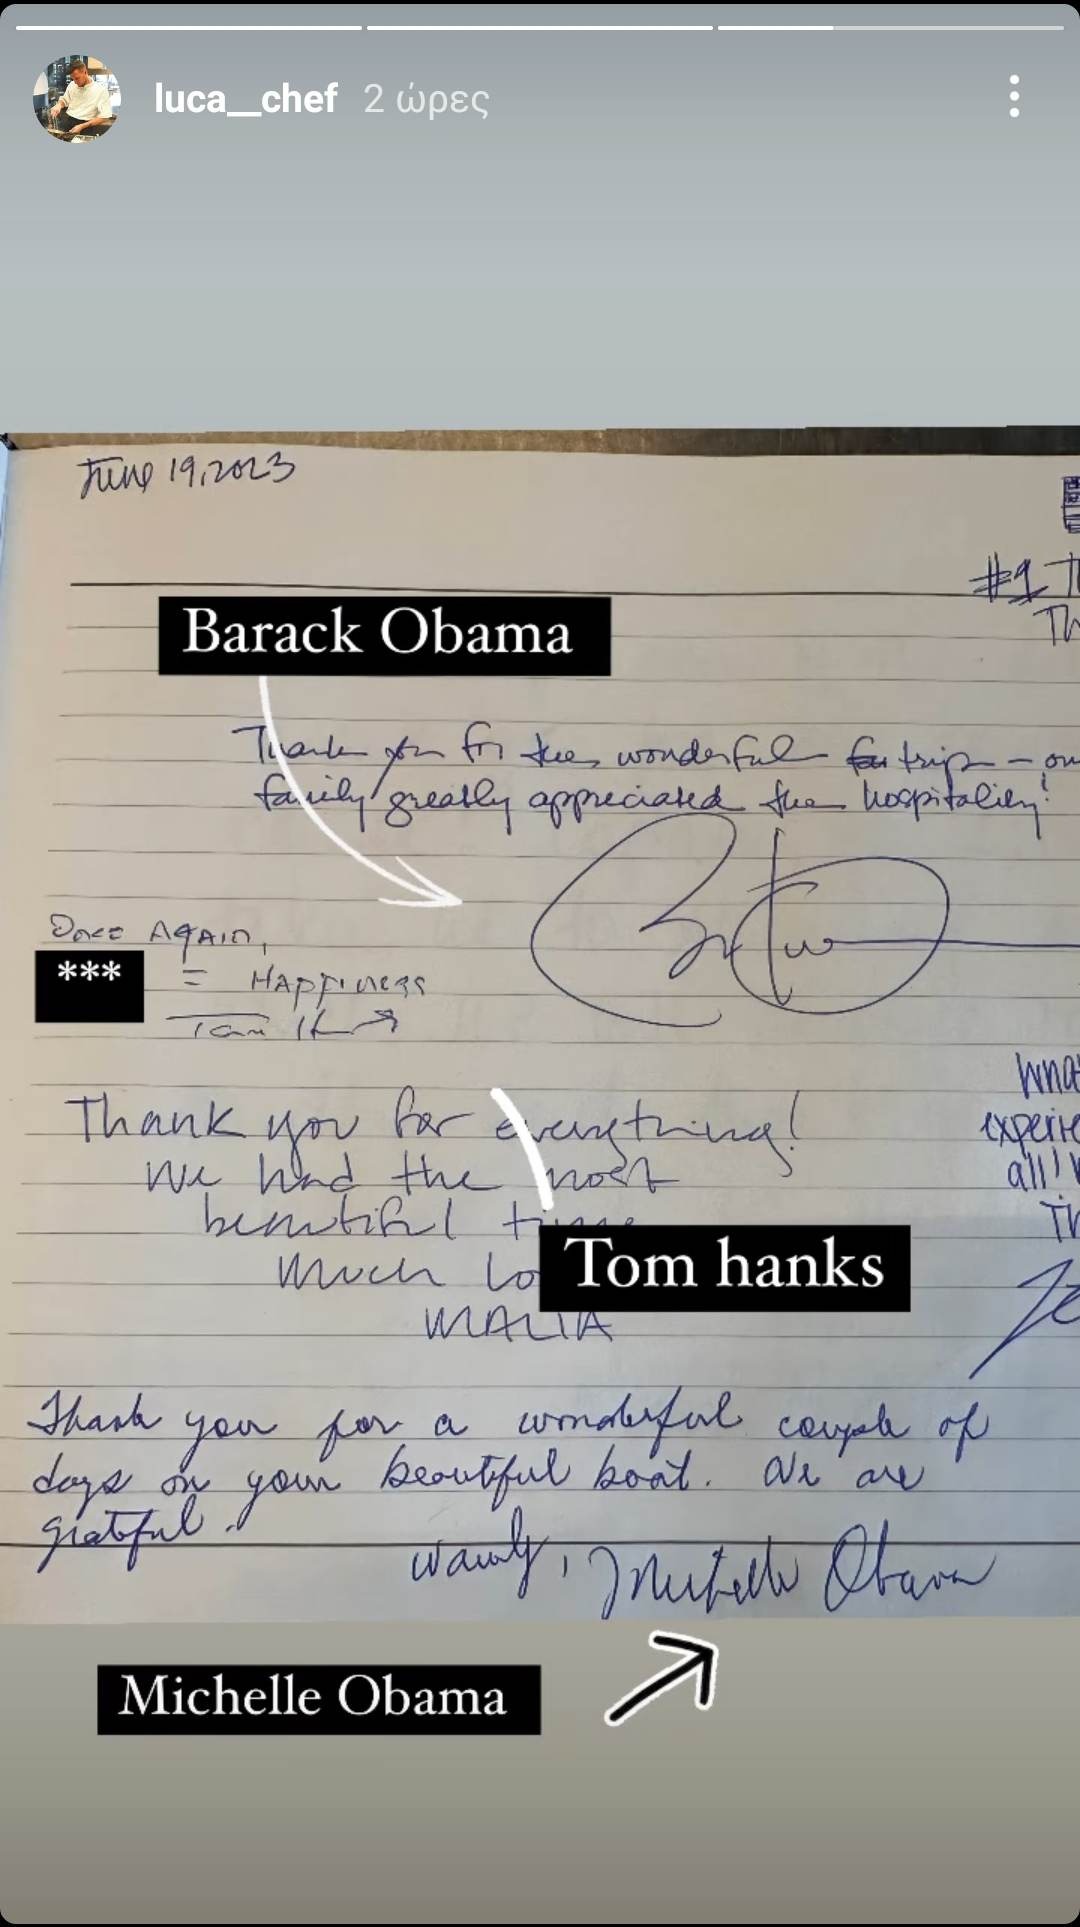 luca__chef 2 ώρες
June 19, 2023
#1
Th
Barack Obama
Thank you for the wonderful trip – our
family greatly appreciated the hospitality!
Once Again,
*** = Happiness
Thank you for everything!
We had the most
beautiful time
Much lo
MALIA
What
experie
all!
Th
Tom hanks
Thank you for a wonderful couple of
days on your beautiful boat. We are
grateful.
warmly, Michelle Obama
Michelle Obama